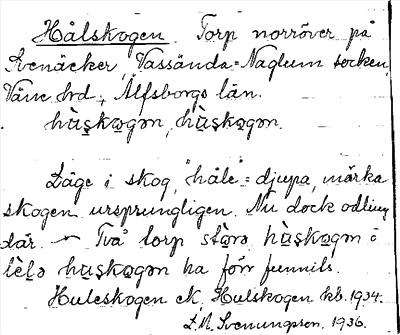 Hålskogen. Torp norröver på
Svenäcker, Vassända-Naglum socken,
Väne hrd., Älfsborgs län.
hùs̱ko̱gən, hùs̱kogən.
Läge i skog, "håle" = djupa, mörka
skogen ursprungligen. Nu dock odling
där. — Två torp stọ̀rə hùs̱kogən ȯ
lèḷə hùs̱kogən ha förr funnits.
Huleskogen ek, Hulskogen kb. 1934.
L.M. Svenungsson, 1936.